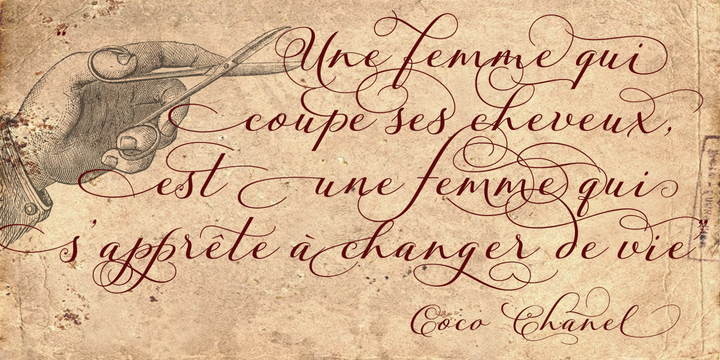 "Une femme qui
coupe ses cheveux,
est une femme qui
s'apprête à changer de vie"
Coco Chanel